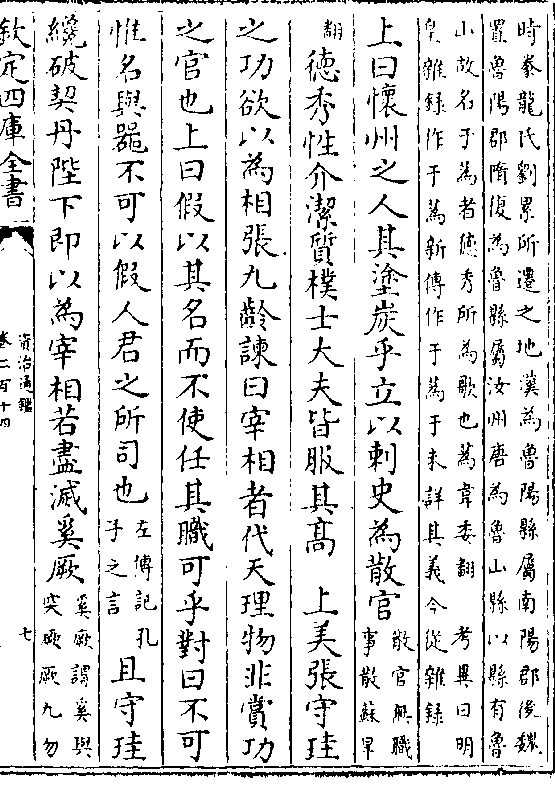 時豢龍氏劉累所遷之地漢為魯陽縣屬南陽郡後魏
置魯陽郡隋復為魯縣屬汝州唐為魯山縣以縣有魯
山故名于為者德秀所為歌也為韋委翻　考異曰明
皇雜録作于為新傳作于為于未詳其義今從雜録
上曰懷州之人其塗炭乎立以刺史為散官
散官無職
事散蘇旱
翻
德秀性介潔質樸士大夫皆服其高　上美張守珪
之功欲以為相張九齡諫曰宰相者代天理物非賞功
之官也上曰假以其名而不使任其職可乎對曰不可
惟名與器不可以假人君之所司也
左傳記孔
子之言
且守珪
纔破契丹陛下即以為宰相若盡滅奚厥
奚厥謂奚與
突厥厥九勿
欽定四庫全書
資治通鑑
卷二百十四
七